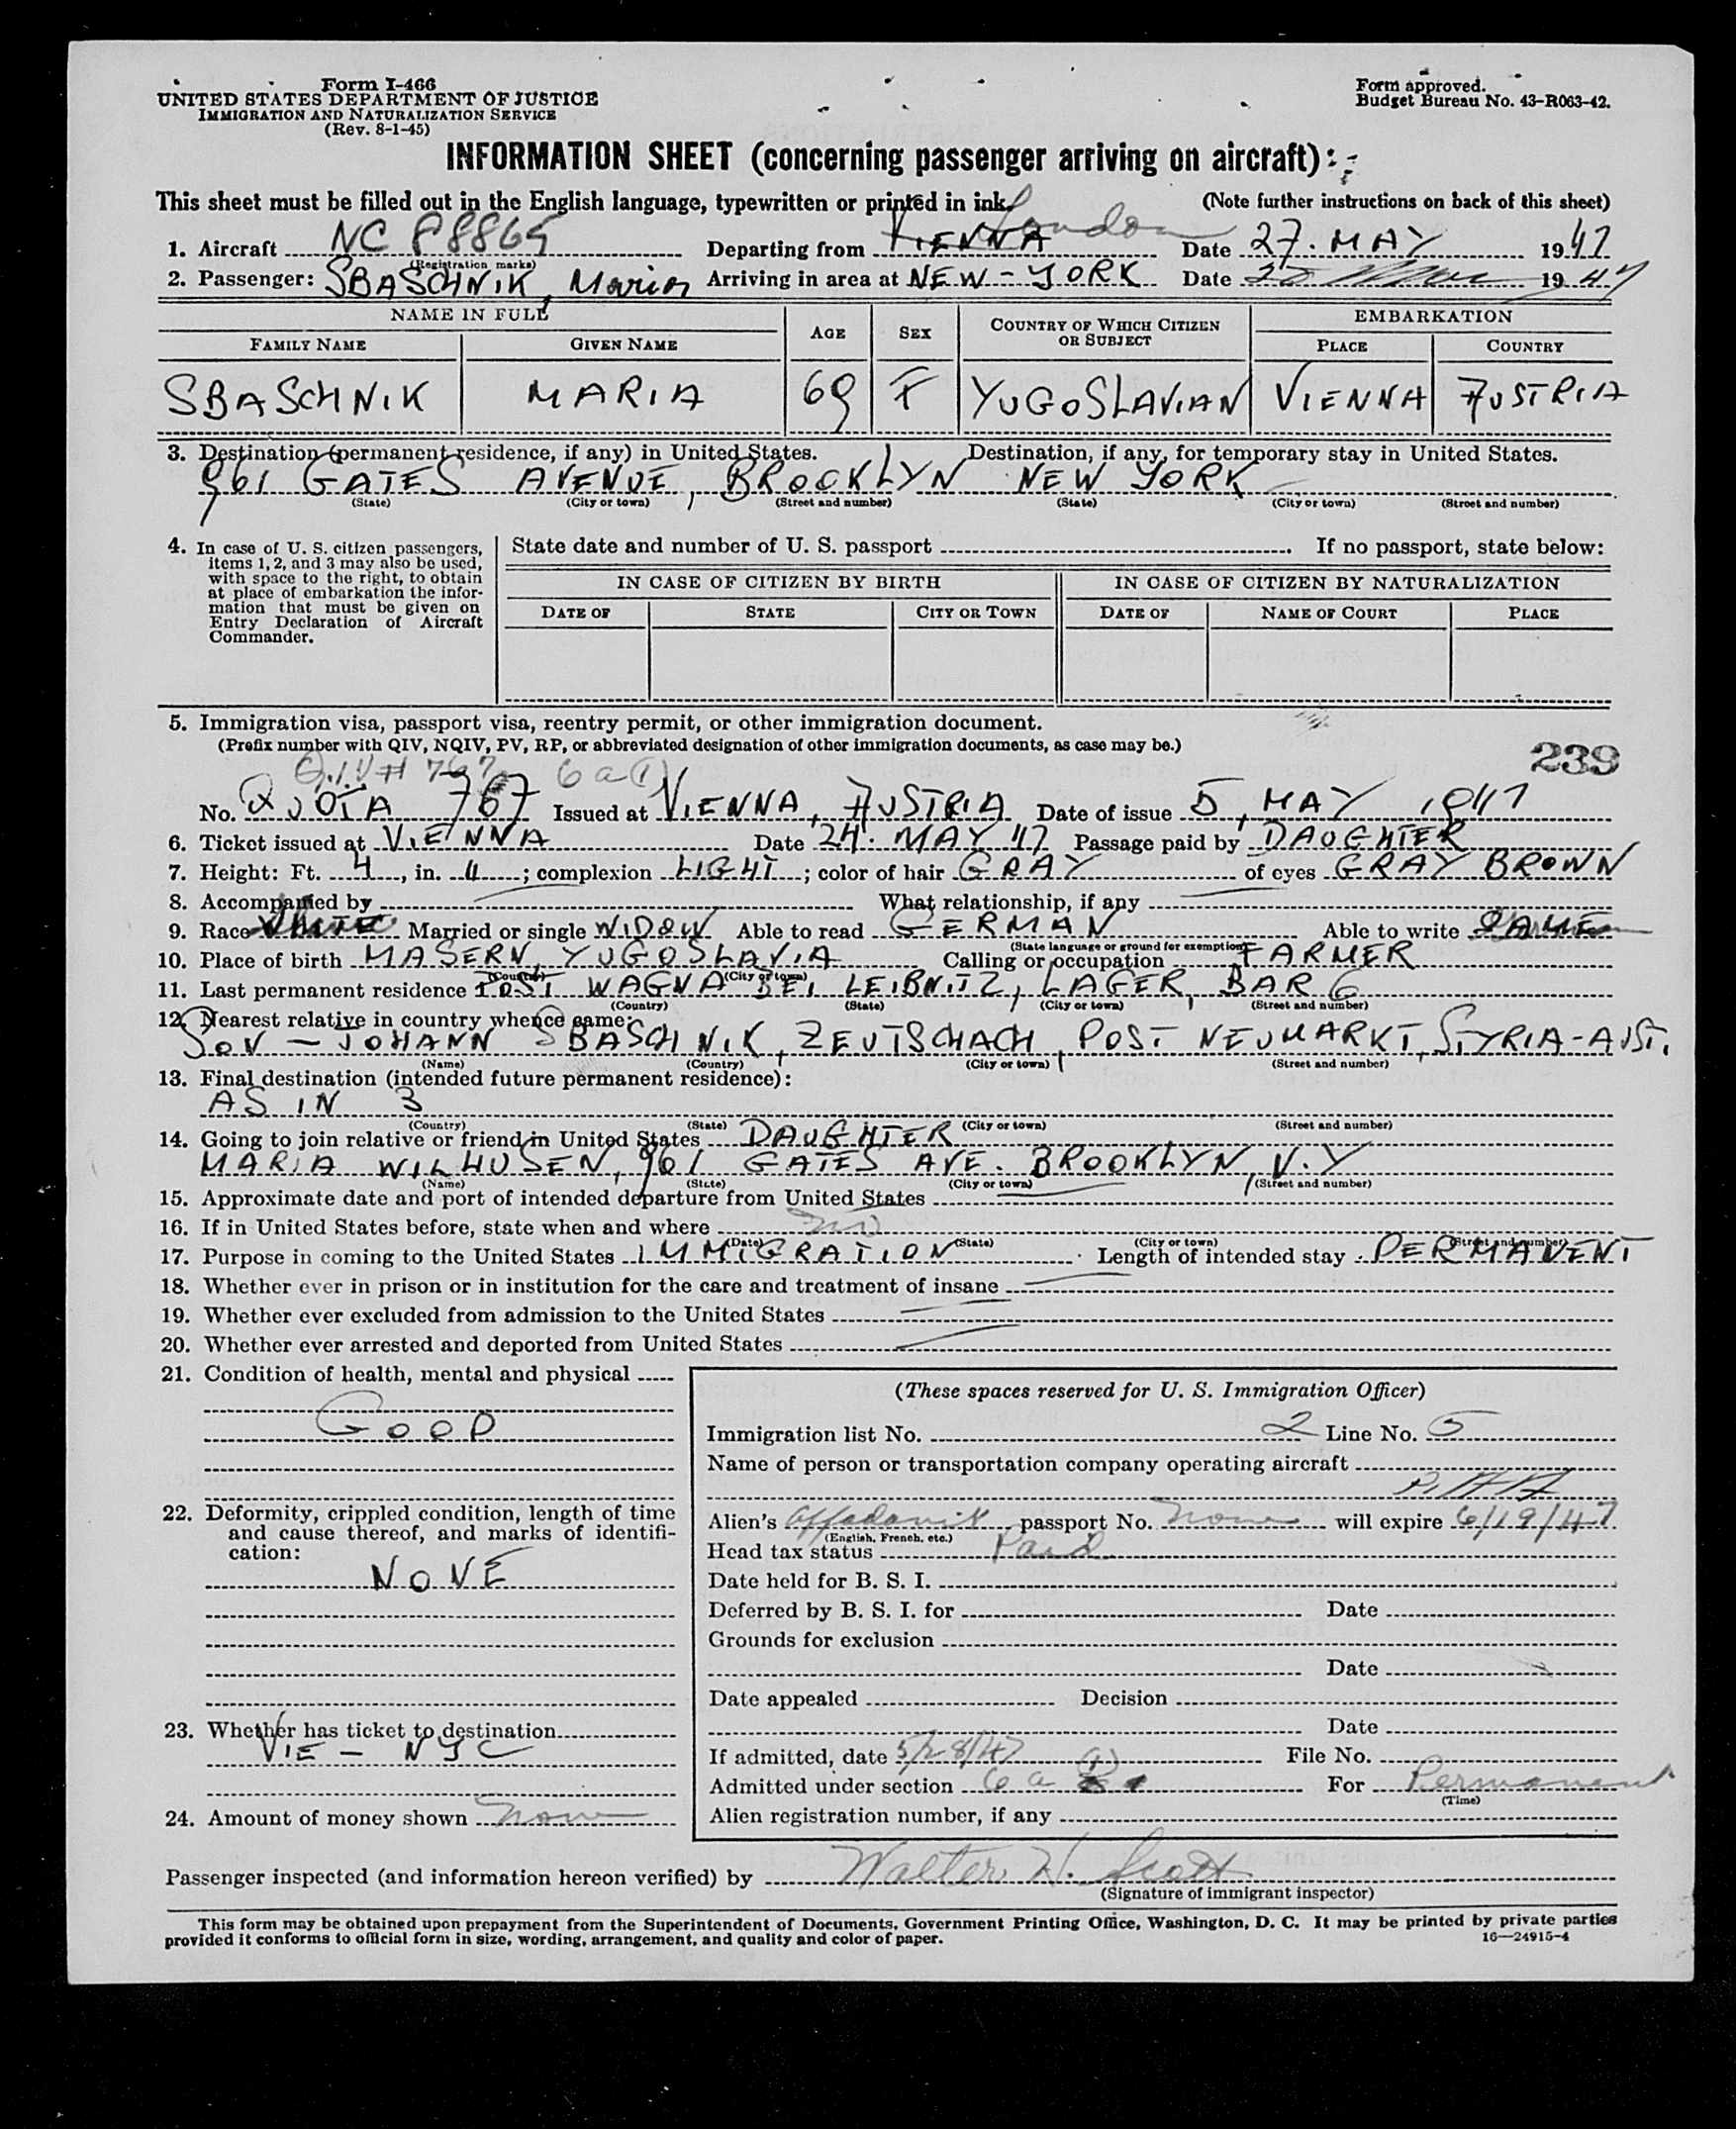 Form I-466
UNITED STATES DEPARTMENT OF JUSTICE
IMMIGRATION AND NATURALIZATION SERVICE
(Rev. 8-1-45)
Form approved.
Budget Bureau No. 43-R063-42.
INFORMATION SHEET (concerning passenger arriving on aircraft)
This sheet must be filled out in the English language, typewritten or printed in ink. (Note further instructions on back of this sheet)
London
1. Aircraft NC 88865 Departing from VIENNA Date 27. MAY 1947
(Registration marks)
2. Passenger: SBASCHNIK, Maria Arriving in area at NEW-YORK Date 1947
NAME IN FULL AGE SEX COUNTRY OF WHICH CITIZEN OR SUBJECT EMBARKATION
FAMILY NAME GIVEN NAME PLACE COUNTRY
SBASCHNIK MARIA 69 F YUGOSLAVIAN VIENNA AUSTRIA
3. Destination (permanent residence, if any) in United States. Destination, if any, for temporary stay in United States.
961 GATES AVENUE, BROOKLYN NEW YORK
(State) (City or town) (Street and number) (State) (City or town) (Street and number)
4. In case of U. S. citizen passengers, items 1, 2, and 3 may also be used, with space to the right, to obtain at place of embarkation the information that must be given on Entry Declaration of Aircraft Commander.
State date and number of U. S. passport . If no passport, state below:
IN CASE OF CITIZEN BY BIRTH IN CASE OF CITIZEN BY NATURALIZATION
DATE OF STATE CITY OR TOWN DATE OF NAME OF COURT PLACE
5. Immigration visa, passport visa, reentry permit, or other immigration document.
(Prefix number with QIV, NQIV, PV, RP, or abbreviated designation of other immigration documents, as case may be.)
239
Q.I.V # 767 6 a (1)
No. QUOTA 767 Issued at VIENNA, AUSTRIA Date of issue 5, MAY 1947
6. Ticket issued at VIENNA Date 24. MAY 47 Passage paid by DAUGHTER
7. Height: Ft. 4, in. 11; complexion LIGHT; color of hair GRAY of eyes GRAY BROWN
8. Accompanied by What relationship, if any
9. Race Married or single WIDOW Able to read GERMAN Able to write SAME
(State language or ground for exemption)
10. Place of birth MASERN, YUGOSLAVIA Calling or occupation FARMER
(Country) (City or town)
11. Last permanent residence POST WAGNA BEI LEIBNITZ, LAGER, BAR 6
(Country) (State) (City or town) (Street and number)
12. Nearest relative in country whence came:
SON - JOHANN SBASCHNIK, ZEUTSCHACH, POST NEUMARKT, STYRIA-AUST.
(Name) (Country) (City or town) (Street and number)
13. Final destination (intended future permanent residence):
AS IN 3
(Country) (State) (City or town) (Street and number)
14. Going to join relative or friend in United States DAUGHTER
MARIA WILHUSEN, 961 GATES AVE. BROOKLYN, N.Y
(Name) (State) (City or town) (Street and number)
15. Approximate date and port of intended departure from United States
16. If in United States before, state when and where no
(Date) (State) (City or town) (Street and number)
17. Purpose in coming to the United States IMMIGRATION. Length of intended stay PERMANENT
18. Whether ever in prison or in institution for the care and treatment of insane
19. Whether ever excluded from admission to the United States
20. Whether ever arrested and deported from United States
21. Condition of health, mental and physical
GOOD
22. Deformity, crippled condition, length of time and cause thereof, and marks of identification:
NONE
23. Whether has ticket to destination
VIE - NYC
24. Amount of money shown none
(These spaces reserved for U. S. Immigration Officer)
Immigration list No. 2 Line No. 5
Name of person or transportation company operating aircraft
P.A.A
Alien's affadavit passport No. none will expire 6/19/47
(English, French, etc.)
Head tax status Paid
Date held for B. S. I.
Deferred by B. S. I. for Date
Grounds for exclusion
Date
Date appealed Decision
Date
If admitted, date 5/28/47 File No.
Admitted under section 6 a (1) For Permanent
(Time)
Alien registration number, if any
Passenger inspected (and information hereon verified) by Walter H. Scott
(Signature of immigrant inspector)
This form may be obtained upon prepayment from the Superintendent of Documents, Government Printing Office, Washington, D. C. It may be printed by private parties
provided it conforms to official form in size, wording, arrangement, and quality and color of paper. 16—24915-4